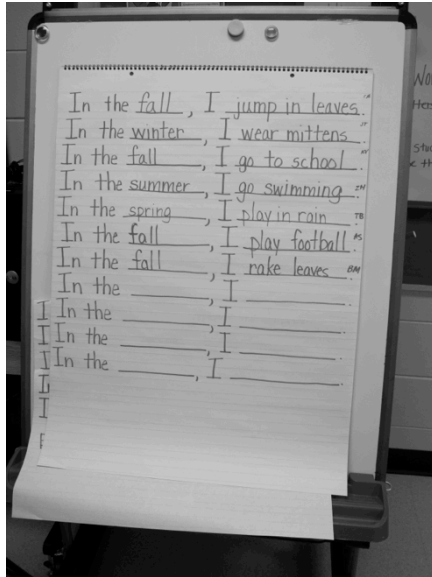 In the fall, I jump in leaves.
In the winter, I wear mittens.
In the fall, I go to school.
In the summer, I go swimming.
In the spring, I play in rain. TB
In the fall, I play football.
In the fall, I rake leaves. BM
In the ____, I ____.
In the ____, I ____.
In the ____, I ____.
In the ____, I ____.